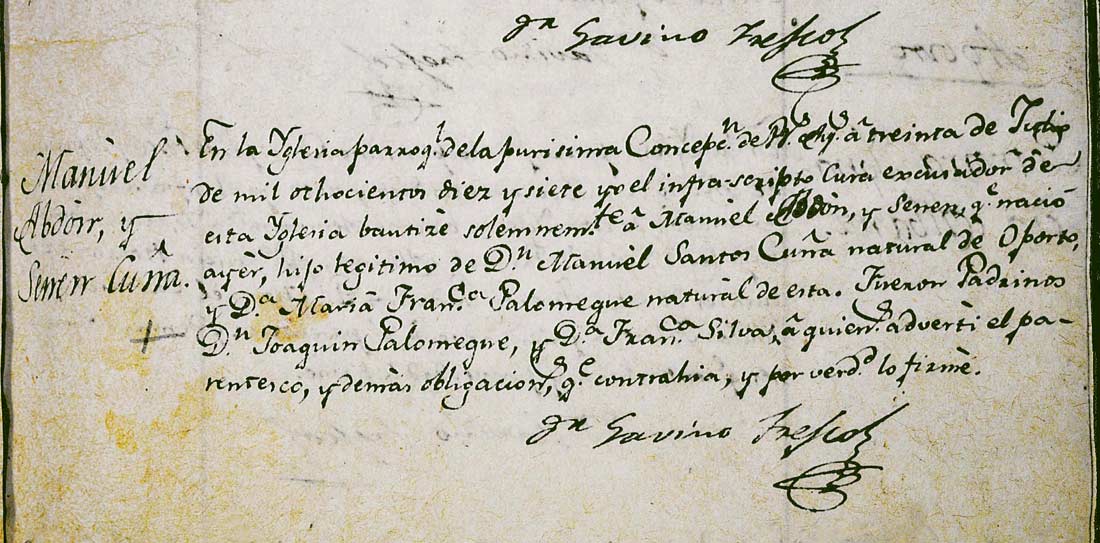 Gavino Fresco
Manuel
Abdon, y
Senen Cuña.
En la Yglesia parroq.l de la purisima Concepc.n de â treinta de Julio
de mil ochocientos diez y siete yo el infra-scripto Cura excusador de
esta Yglesia bautizè solemnem.te â Manuel Abdòn, y Senen, q.e naciò
ayèr, hijo legitimo de D.n Manuel Santos Cuña natural de Oporto,
y D.a Maria Fran.ca Palomeque naturàl de esta. Fueron Padrinos
D.n Joaquin Palomeque, y D.a Fran.ca Silva, â quien.s adverti el pa-
rentesco, y demàs obligacion.s q.e contrahia, y por verd.d lo firmè.
Gavino Fresco